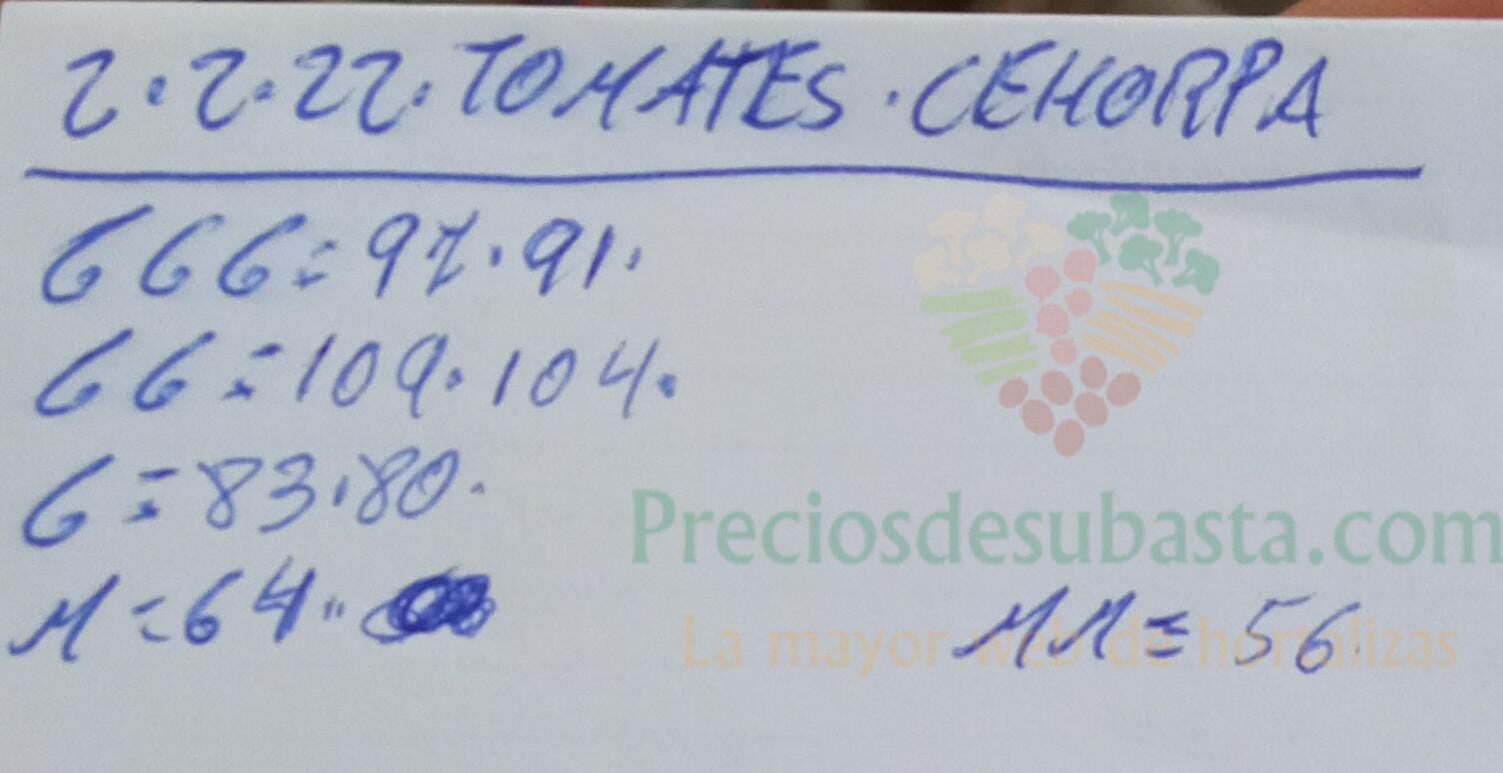 2.2.22. TOMATES. CEHORPA
GGG = 97.91.
GG = 109.104.
G = 83.80.
Preciosdesubasta.com
M = 64.. MM = 56.
La mayor web de hortalizas